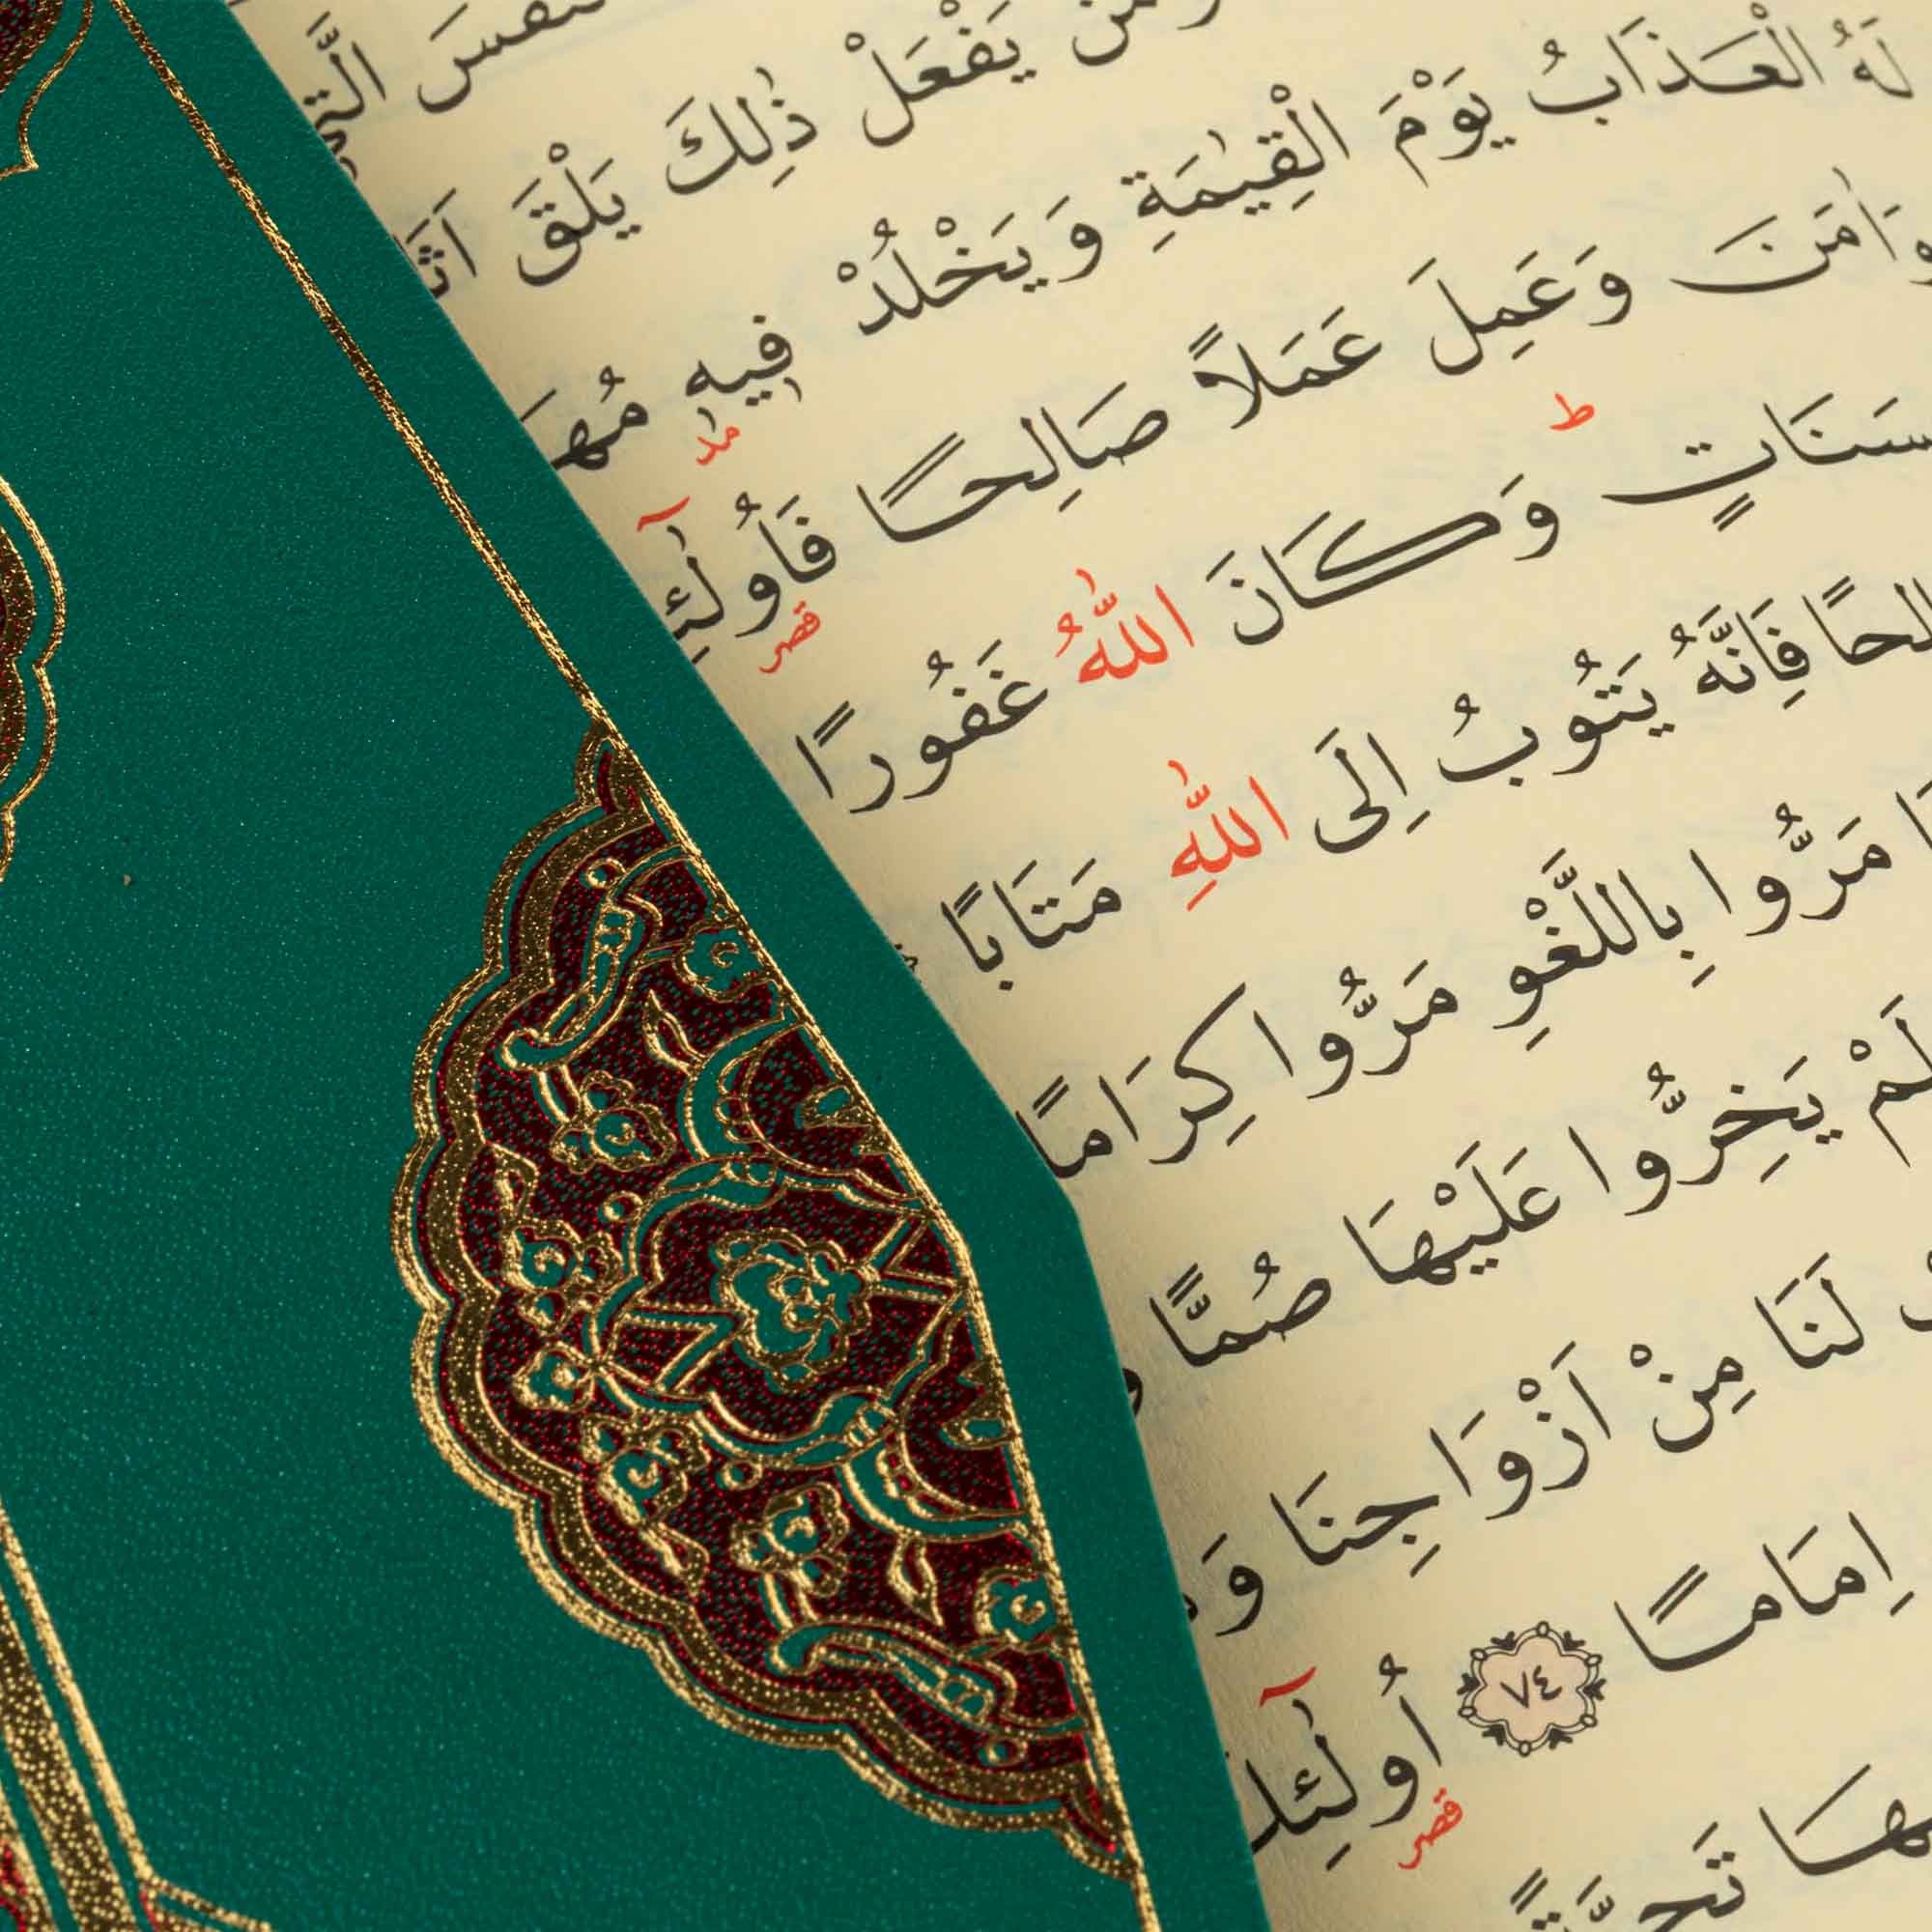 يَفْعَلْ ذٰلِكَ يَلْقَ
لَهُ الْعَذَابُ يَوْمَ الْقِيٰمَةِ وَيَخْلُدْ فِيهٖ
وَاٰمَنَ وَعَمِلَ عَمَلًا صَالِحًا فَاُو۬لٰٓئِ
مد
قصر
ط
وَكَانَ اللّٰهُ غَفُورًا
فَاِنَّهُ يَتُوبُ اِلَى اللّٰهِ مَتَابًا
مَرُّوا بِاللَّغْوِ مَرُّوا كِرَامًا
لَمْ يَخِرُّوا عَلَيْهَا صُمًّا
لَنَا مِنْ اَزْوَاجِنَا
اِمَامًا ٧٤ اُو۬لٰٓئِكَ
قصر